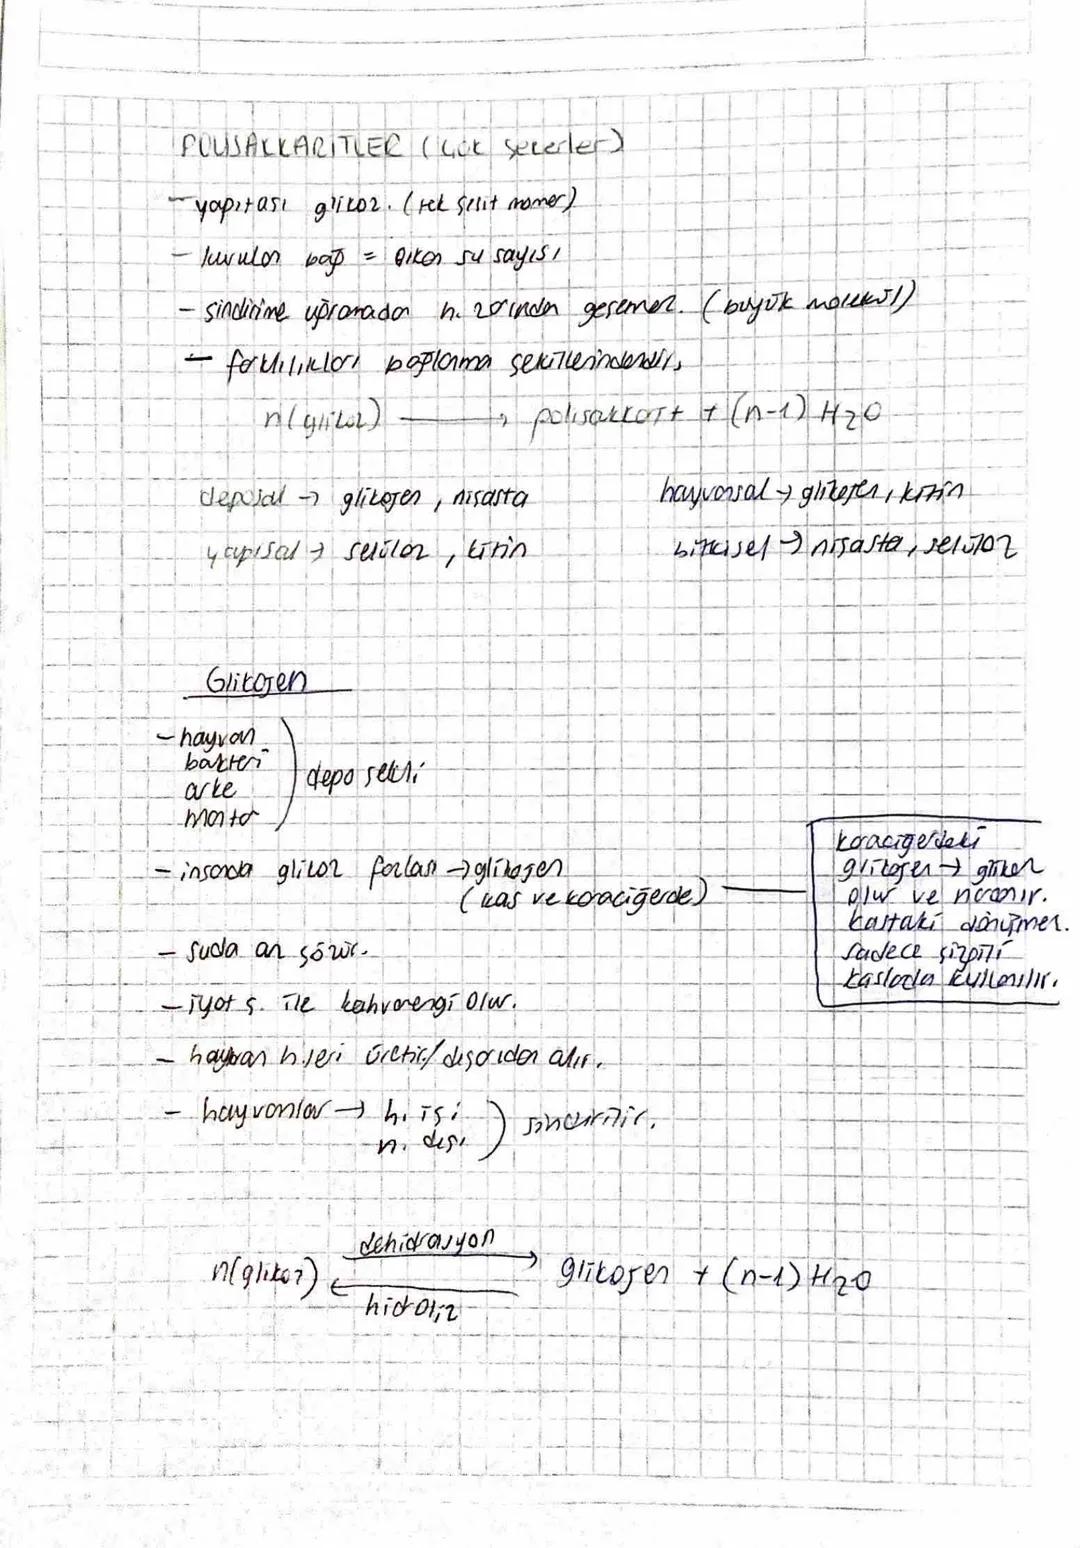 POLİSAKKARİTLER (Çok şekerler)
- yapıtaşı glikoz. (tek çeşit monomer)
- kurulan bağ = çıkan su sayısı
- sindirime uğramadan h. zarından geçemez. (büyük molekül)
- farklılıkları bağlanma şekillerindendir.
n(glikoz) → polisakkarit + (n-1) H2O
deposal → glikojen, nişasta
hayvansal → glikojen, kitin
yapısal → selüloz, kitin
bitkisel → nişasta, selüloz
Glikojen
- hayvan
bakteri
arke
mantar
) depo şekli
- insanda glikoz fazlası → glikojen
(kas ve karaciğerde)
karaciğerdeki
glikojen → glikoz
olur ve
kastaki dönüşmez.
sadece çizgili
kaslarda kullanılır.
- suda az çözür.
- iyot ç. ile kahverengi olur.
- hayvan h.leri üretir/dışarıdan alır.
- hayvanlar → h. içi
h. dışı
) sindirilir.
dehidrasyon
n(glikoz) ⇄ glikojen + (n-1) H2O
hidroliz